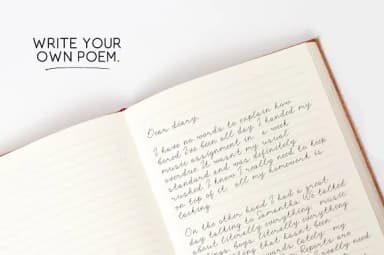 WRITE YOUR
OWN POEM.
Dear diary,
I have no words to explain how
bored I've been all day. I handed my
music assignment in a week
overdue. It wasn't my usual
standard and was definitely
rushed. I know I really need to keep
on top of it all my homework is
lacking.
On the other hand I had a great
day talking to Samantha. We talked
about literally everything music
boys, literally everything
thing that hasn't been
words lately, my
Reports are
I really need